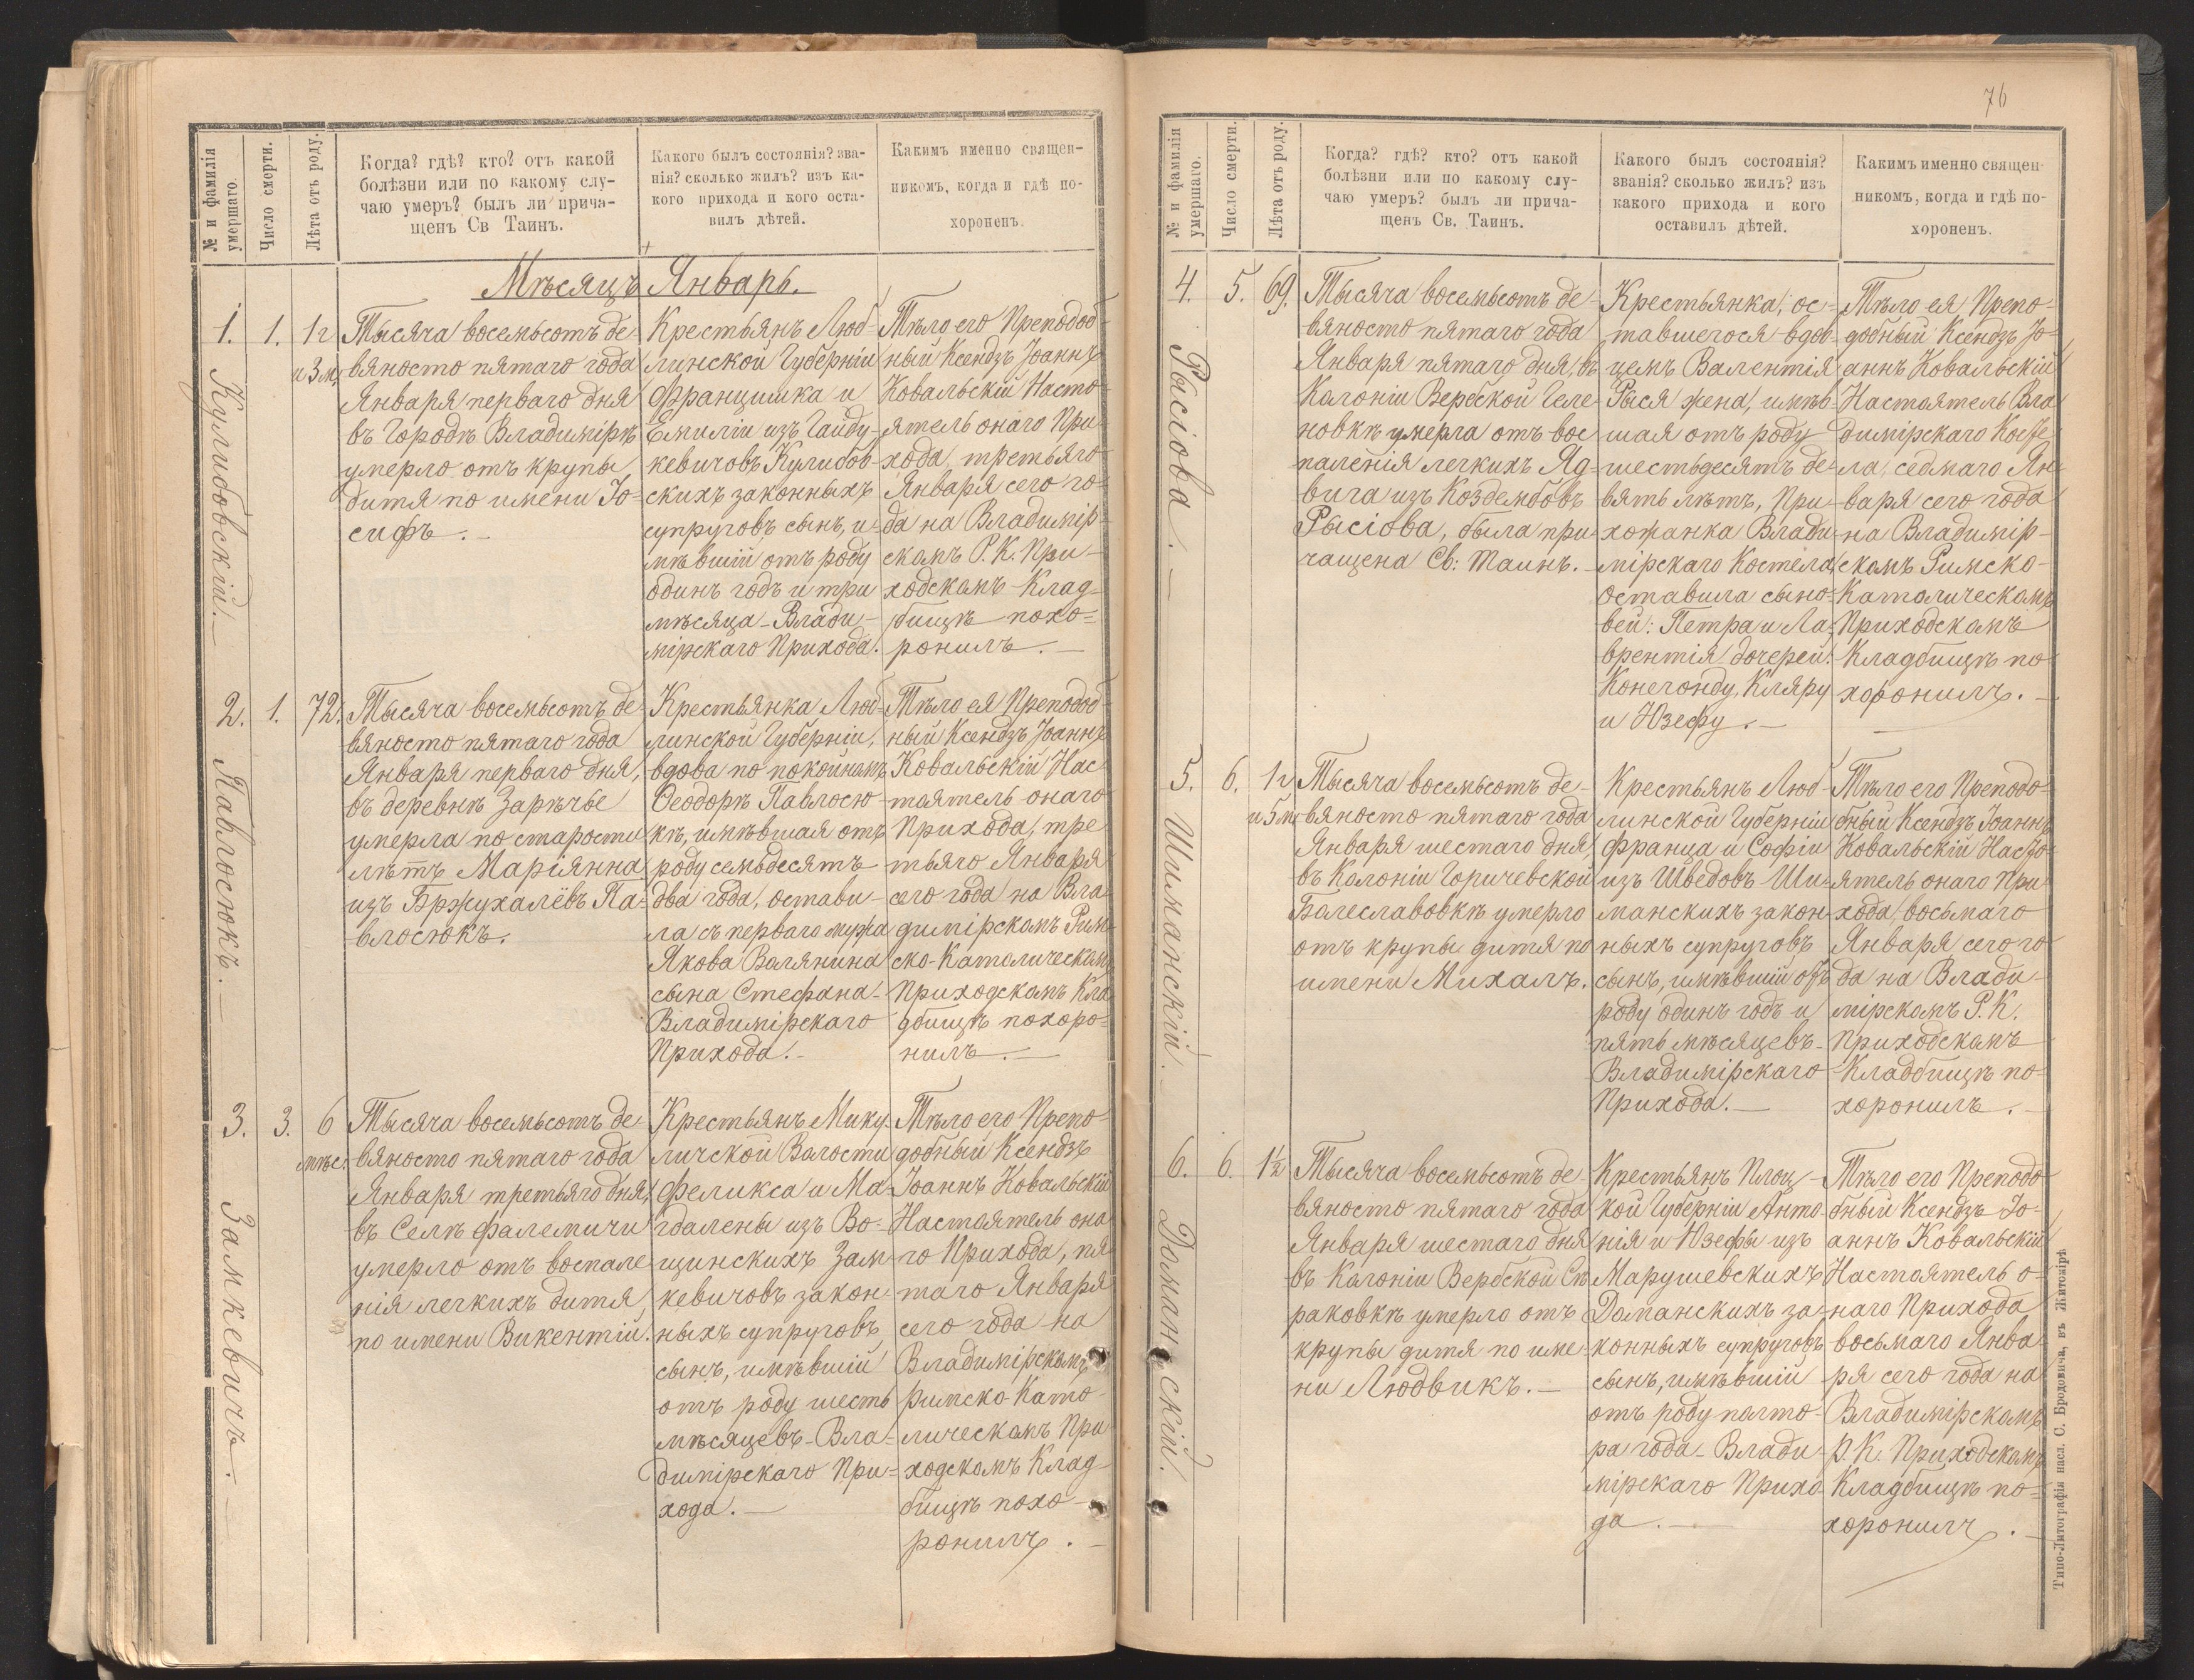 76
№ и фамилія
умершаго.
Число смерти.
Лѣта отъ роду.
Когда? гдѣ? кто? отъ какой
болѣзни или по какому слу-
чаю умеръ? былъ ли прича-
щенъ Св Таинъ.
Какого былъ состоянія? зва-
нія? сколько жилъ? изъ ка-
кого прихода и кого оста-
вилъ дѣтей.
Какимъ именно священ-
никомъ, когда и гдѣ по-
хороненъ.
Мѣсяцъ Январь.
1.
Кулибовскій.
1.
1 г
и 3 м,
Тысяча восемьсотъ де-
вяносто пятаго года
Января перваго дня
въ Городѣ Владимірѣ
умерло отъ крупы,
дитя по имени Іо-
сифъ.
Крестьянъ Люб-
линской Губерніи
Францишка и
Емиліи изъ Гайду-
кевичовъ Кулибов-
скихъ законныхъ
супруговъ сынъ, и-
мѣвшій отъ роду
одинъ годъ и три
мѣсяца - Влади-
мірскаго Прихода.
Тѣло его Преподоб-
ный Ксендзъ Іоаннъ
Ковальскій Насто-
ятель онаго При-
хода, третьяго
Января сего го-
да на Владимір-
скомъ Р. К. При-
ходскомъ Клад-
бищѣ похо-
ронилъ.
2.
Павлосюкъ.
1.
72.
Тысяча восемьсотъ де-
вяносто пятаго года
Января перваго дня,
въ деревнѣ Зарѣчье
умерла по старости
лѣтъ Маріянна
изъ Бржухалёвъ Па-
влосюкъ.
Крестьянка Люб-
линской Губерніи,
вдова по покойномъ
Ѳеодорѣ Павлосю-
кѣ, имѣвшая отъ
роду семьдесятъ
два года, остави-
ла съ перваго мужа
Якова Валянина
сына Стефана -
Владимірскаго
Прихода.
Тѣло ея Преподоб-
ный Ксендзъ Іоаннъ
Ковальскій Нас-
тоятель онаго
Прихода, тре-
тьяго Января
сего года на Вла-
димірскомъ Рим-
ско-Католическомъ
Приходскомъ Кла-
дбищѣ похоро-
нилъ.
3.
Замкевичъ.
3.
6
мѣс.
Тысяча восемьсотъ де-
вяносто пятаго года
Января третьяго дня,
въ Селѣ Фалемичи
умерло отъ воспале-
нія легкихъ дитя,
по имени Викентій.
Крестьянъ Мику-
личской Волости
Феликса и Ма-
гдалены изъ Во-
щинскихъ Зам-
кевичовъ закон-
ныхъ супруговъ
сынъ, имѣвшій
отъ роду шесть
мѣсяцевъ - Вла-
димірскаго При-
хода.
Тѣло его Препо-
добный Ксендзъ
Іоаннъ Ковальскій
Настоятель она-
го Прихода, пя-
таго Января
сего года на
Владимірскомъ
Римско-Като-
лическомъ При-
ходскомъ Клад-
бищѣ похо-
ронилъ.
№ и фамилія
умершаго.
Число смерти.
Лѣта отъ роду.
Когда? гдѣ? кто? отъ какой
болѣзни или по какому слу-
чаю умеръ? былъ ли прича-
щенъ Св. Таинъ.
Какого былъ состоянія?
званія? сколько жилъ? изъ
какого прихода и кого
оставилъ дѣтей.
Какимъ именно священ-
никомъ, когда и гдѣ по-
хороненъ.
4.
Рысіова.
5.
69.
Тысяча восемьсотъ де-
вяносто пятаго года
Января пятаго дня, въ
Колоніи Вербской Геле-
новкѣ умерла отъ вос-
паленія легкихъ Яд-
вига изъ Коздембовъ
Рысіова, была при-
чащена Св: Таинъ.
Крестьянка, ос-
тавшегося вдов-
цемъ Валентія
Рыся жена, имѣв-
шая отъ роду
шестьдесятъ де-
вять лѣтъ, При-
хожанка Влади-
мірскаго Костела
оставила сыно-
вей: Петра и Ла-
врентія, дочерей:
Конегонду, Кляру
и Юзефу.
Тѣло ея Препо-
добный Ксендзъ Іо-
аннъ Ковальскій
Настоятель Вла-
димірскаго Косте-
ла, седмаго Ян-
варя сего года
на Владимір-
скомъ Римско-
Католическомъ
Приходскомъ
Кладбищѣ по-
хоронилъ.
5.
Шиманскій.
6.
1 г
и 5 м,
Тысяча восемьсотъ де-
вяносто пятаго года
Января шестаго дня
въ Колоніи Горичевской
Болеславовкѣ умерло
отъ крупы дитя по
имени Михалъ.
Крестьянъ Люб-
линской Губерніи
Франца и Софіи
изъ Шведовъ Ши-
манскихъ закон-
ныхъ супруговъ
сынъ, имѣвшій отъ
роду одинъ годъ и
пять мѣсяцевъ -
Владимірскаго
Прихода.
Тѣло его Преподо-
бный Ксендзъ Іоаннъ
Ковальскій Насто-
ятель онаго При-
хода, восьмаго
Января сего го-
да на Влади-
мірскомъ Р. К.
Приходскомъ
Кладбищѣ по-
хоронилъ.
6.
Доманскій.
6.
1½
Тысяча восемьсотъ де-
вяносто пятаго года
Января шестаго дня
въ Колоніи Вербской Сѣ-
раковкѣ умерло отъ
крупы дитя по име-
ни Людвикъ.
Крестьянъ Плоц-
кой Губерніи Анто-
нія и Юзефы изъ
Марушевскихъ
Доманскихъ за-
конныхъ супруговъ
сынъ, имѣвшій
отъ роду полто-
ра года - Влади-
мірскаго Прихо-
да.
Тѣло его Преподо-
бный Ксендзъ Іо-
аннъ Ковальскій
Настоятель о-
наго Прихода
восьмаго Янва-
ря сего года на
Владимірскомъ
Р. К. Приходскомъ
Кладбищѣ по-
хоронилъ.
Типо-Литографія насл. С. Бродовича, въ Житомірѣ